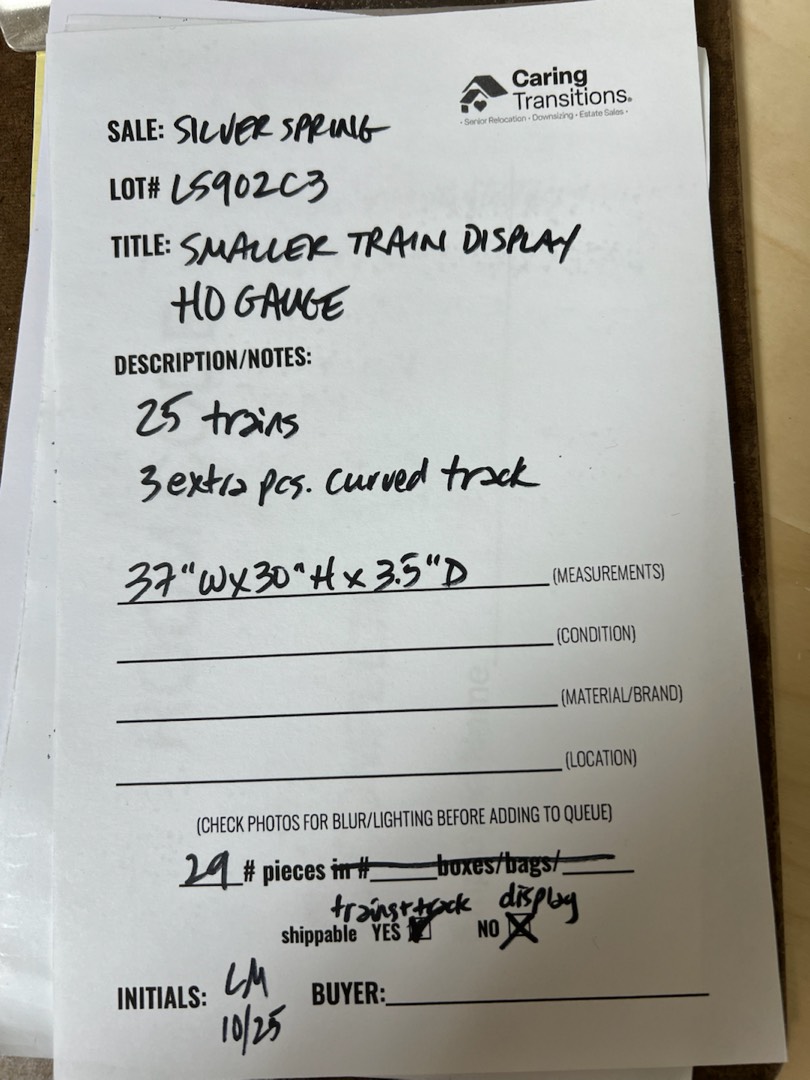 Caring
Transitions.
• Senior Relocation • Downsizing • Estate Sales •
SALE: SILVER SPRING
LOT# LS902C3
TITLE: SMALLER TRAIN DISPLAY
HO GAUGE
DESCRIPTION/NOTES:
25 trains
3 extra pcs. curved track
37"W x 30"H x 3.5"D (MEASUREMENTS)
(CONDITION)
(MATERIAL/BRAND)
(LOCATION)
(CHECK PHOTOS FOR BLUR/LIGHTING BEFORE ADDING TO QUEUE)
29 # pieces in # boxes/bags/
trains+track display
shippable YES NO
INITIALS: LM BUYER:
10/25